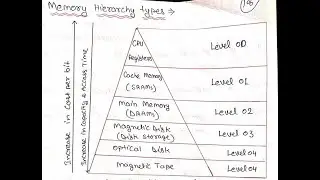 Memory Hierarchy types →
CPU
Registers
Level 00
Cache Memory
(SRAMs)
Level 01
Main Memory
(DRAMs)
Level 02
Magnetic Disk
(Disk Storage)
Level 03
Optical Disk
Level 04
Magnetic Tape
Level 04
Increase in Cost per bit
Increase in Capacity & Access Time